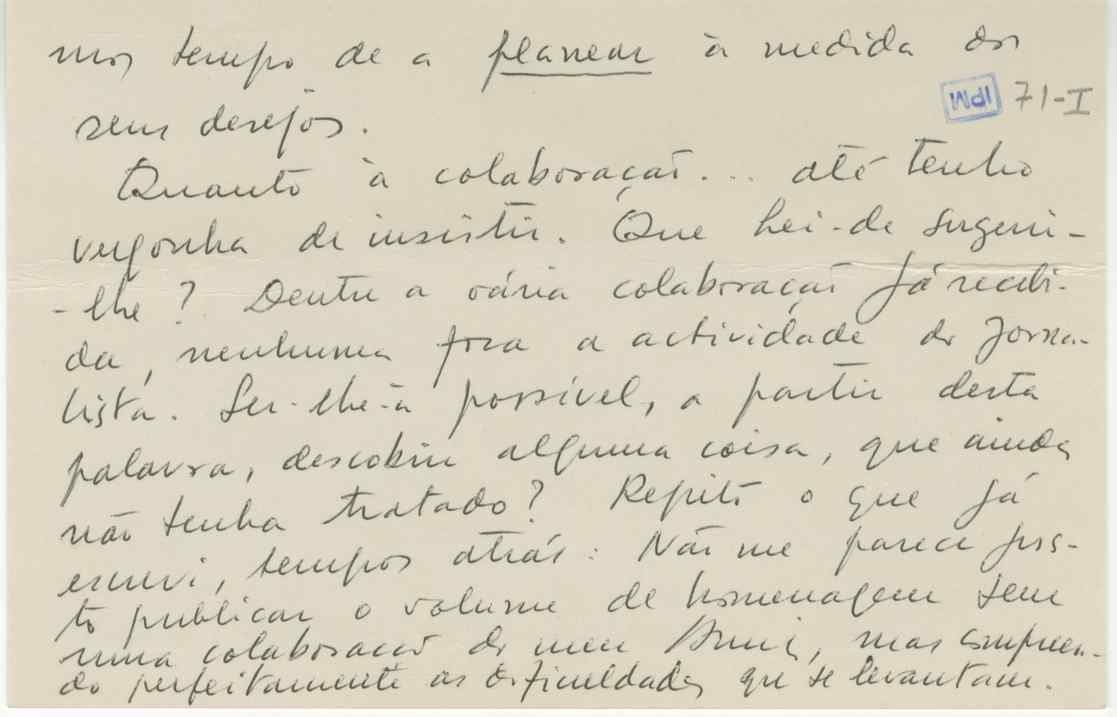 mos tempo de a planear à medida dos
seus desejos.
IPM 71-I
Quanto à colaboração... até tenho
vergonha de insistir. Que hei-de sugerir-
-lhe? Dentre a vária colaboração já recebi-
da, nenhuma foca a actividade do Jorna-
lista. Ser-lhe-à possível, a partir desta
palavra, descobrir alguma coisa, que ainda
não tenha tratado? Repito o que já
escrevi, tempos atrás: Não me parece jus-
to publicar o volume de homenagem sem
uma colaboração do meu Amigo, mas compreen-
do perfeitamente as dificuldades que se levantam.